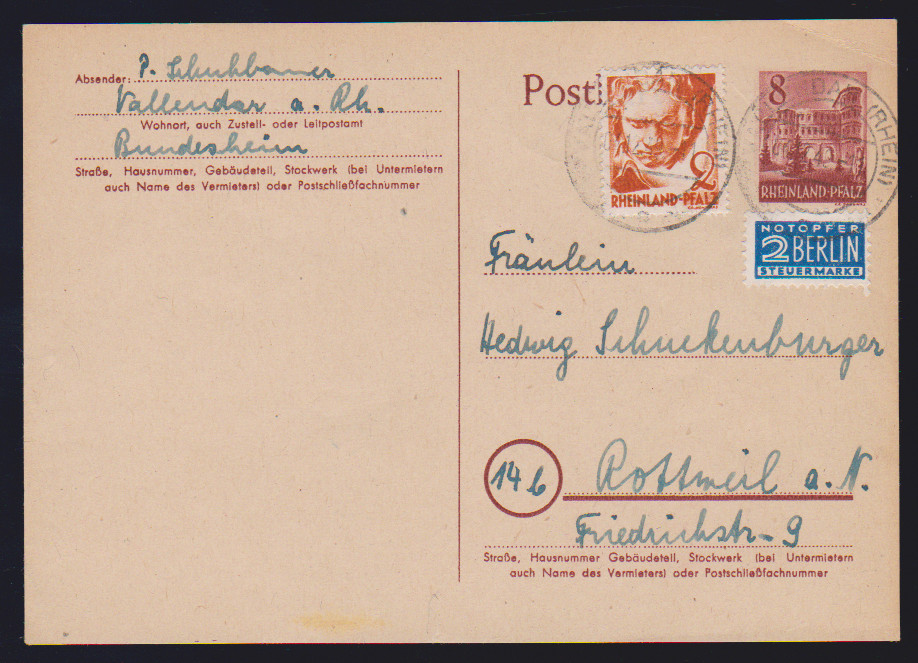 Absender: P. Schuhbauer
Vallendar a. Rh.
Wohnort, auch Zustell- oder Leitpostamt
Bundesheim
Straße, Hausnummer, Gebäudeteil, Stockwerk (bei Untermietern
auch Name des Vermieters) oder Postschließfachnummer
Post
2
RHEINLAND-PFALZ
8
RHEINLAND-PFALZ
(RHEIN)
NOTOPFER
2 BERLIN
STEUERMARKE
Fräulein
Hedwig Schneckenburger
14b
Rottweil a. N.
Friedrichstr. 9
Straße, Hausnummer Gebäudeteil, Stockwerk (bei Untermietern
auch Name des Vermieters) oder Postschließfachnummer